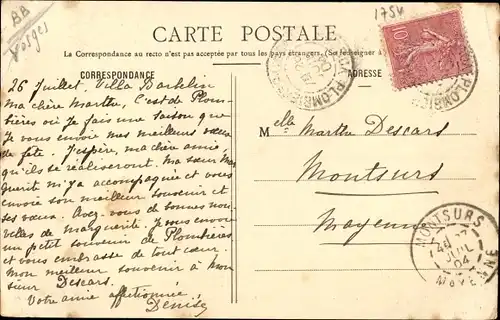 BB
Vosges
1754
CARTE POSTALE
La Correspondance au recto n'est pas acceptée par tous les pays étrangers. (Se renseigner à
CORRESPONDANCE
ADRESSE
10
PLOMBIÈRES
PLOMBIÈRES
26 Juillet. Villa
Ma chère Marthe, C'est de Plom-
bières où je fais une saison que
je vous envoie mes meilleurs vœux
de fête. J'espère, ma chère amie,
qu'ils se réaliseront. Ma sœur Mar
guerit m'y a accompagnée et vous
envoie son meilleur souvenir et
ses vœux. Avez vous de bonnes nou-
velles de Marguerite. Je vous envoie
un petit souvenir de Plombières
et vous embrasse de tout cœur.
Mon meilleur souvenir à Mon
sieur Descars.
Votre amie affectionnée,
Denise
Melle Marthe Descars
Montsurs
Mayenne
MONTSURS
JUIL
04
MAYENNE